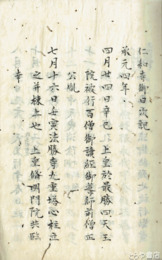 仁和寺御日次記
承元四年
四月廿四日辛巳 上皇於最勝四天王
院被行百僧御讀經御導師前僧正
公胤
七月十六日 寅法勝寺九重塔心柱立
之幷棟上也 上皇 明門院
幸